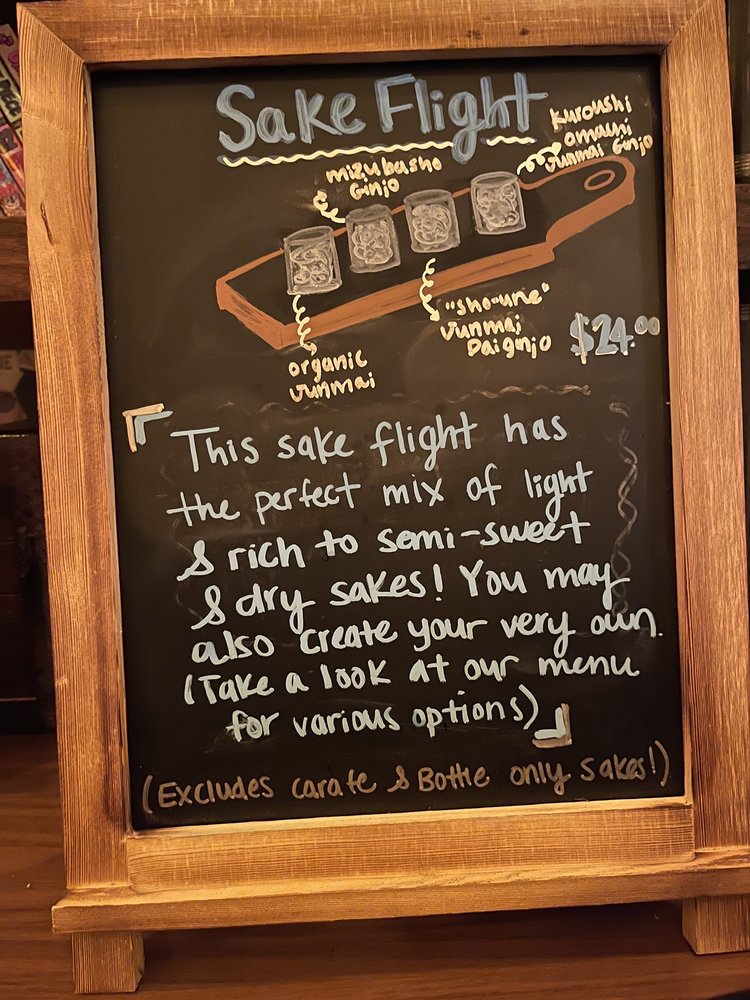 Sake Flight
kuroushi
omachi
Junmai Ginjo
mizubasho
Ginjo
"sho-une"
Junmai
Daiginjo
$24.00
organic
Junmai
This sake flight has
the perfect mix of light
& rich to semi-sweet
& dry sakes! You may
also create your very own.
(Take a look at our menu
for various options)
(Excludes carafe & Bottle only sakes!)